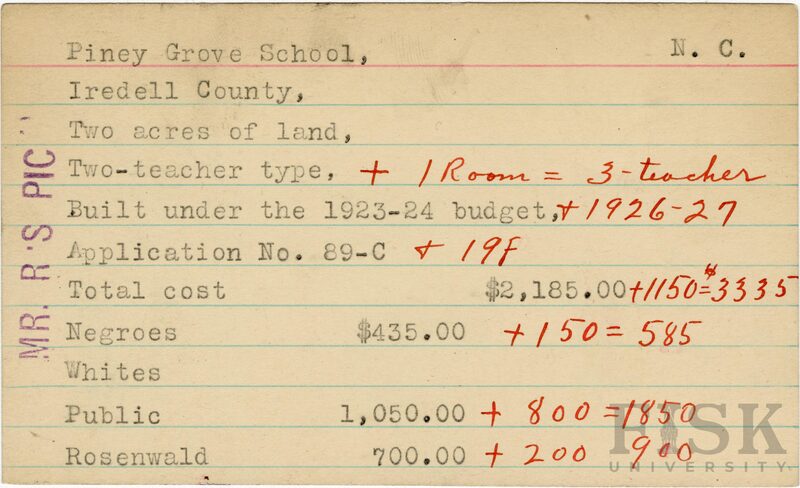 Piney Grove School, N. C.
Iredell County,
Two acres of land,
Two-teacher type, + 1 Room = 3-teacher
Built under the 1923-24 budget, + 1926-27
Application No. 89-C + 19f
Total cost $2,185.00 + 1150 = $3335
Negroes $435.00 + 150 = 585
Whites
Public 1,050.00 + 800 = 1850
Rosenwald 700.00 + 200 900
MR. R'S PIC
FISK
UNIVERSITY